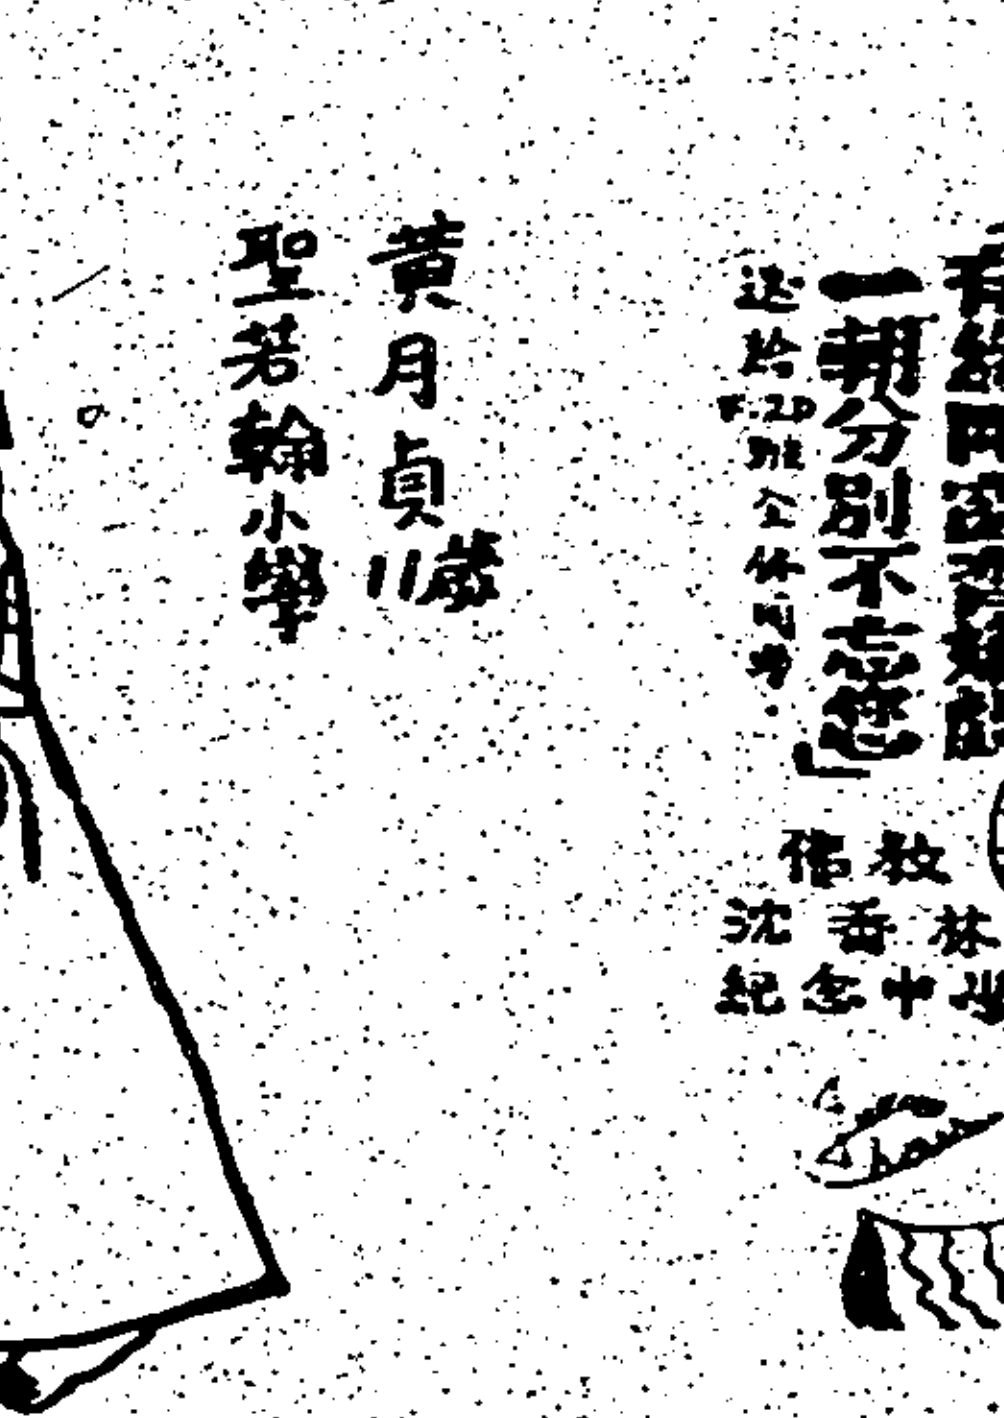 有緣同窗
一朝分別不忘您」
送給F.2D班全体同學.
佛教
沈香林
紀念中學
黃月貞11歲
聖若翰小學